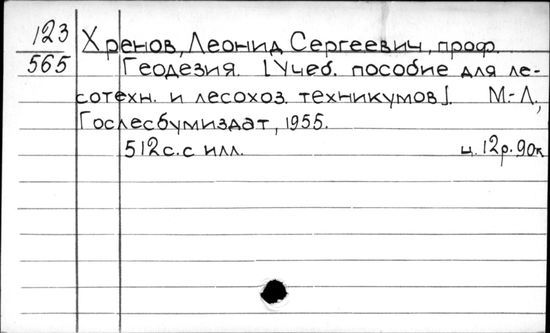 123
565
Хренов, Леонид Сергеевич, проф.
Геодезия. [Учеб. пособие для ле-
сотехн. и лесохоз. техникумов]. М.-Л.,
Гослесбумиздат, 1955.
512с. с илл. ц. 12р. 90к